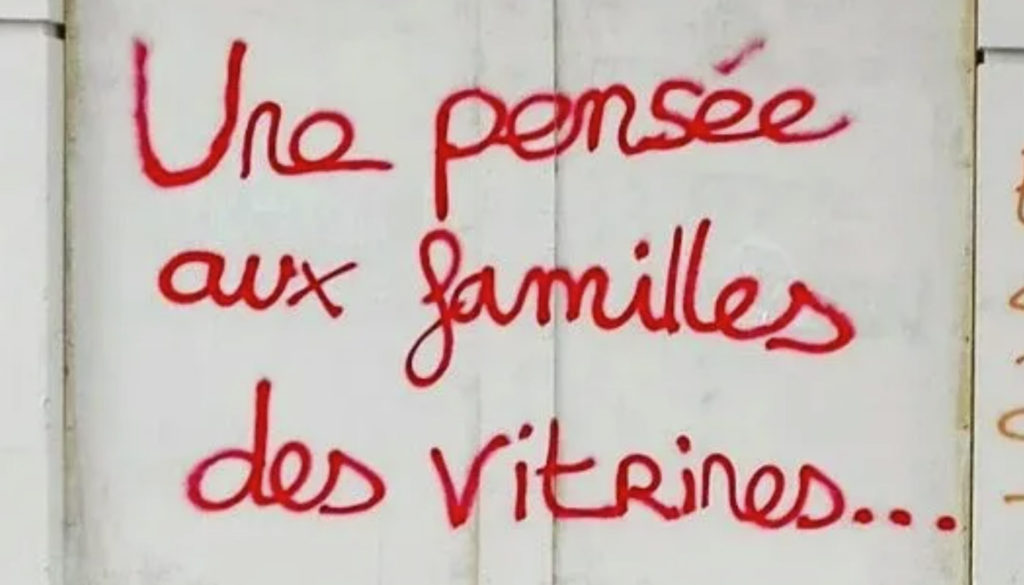 Une pensée
aux familles
des vitrines...